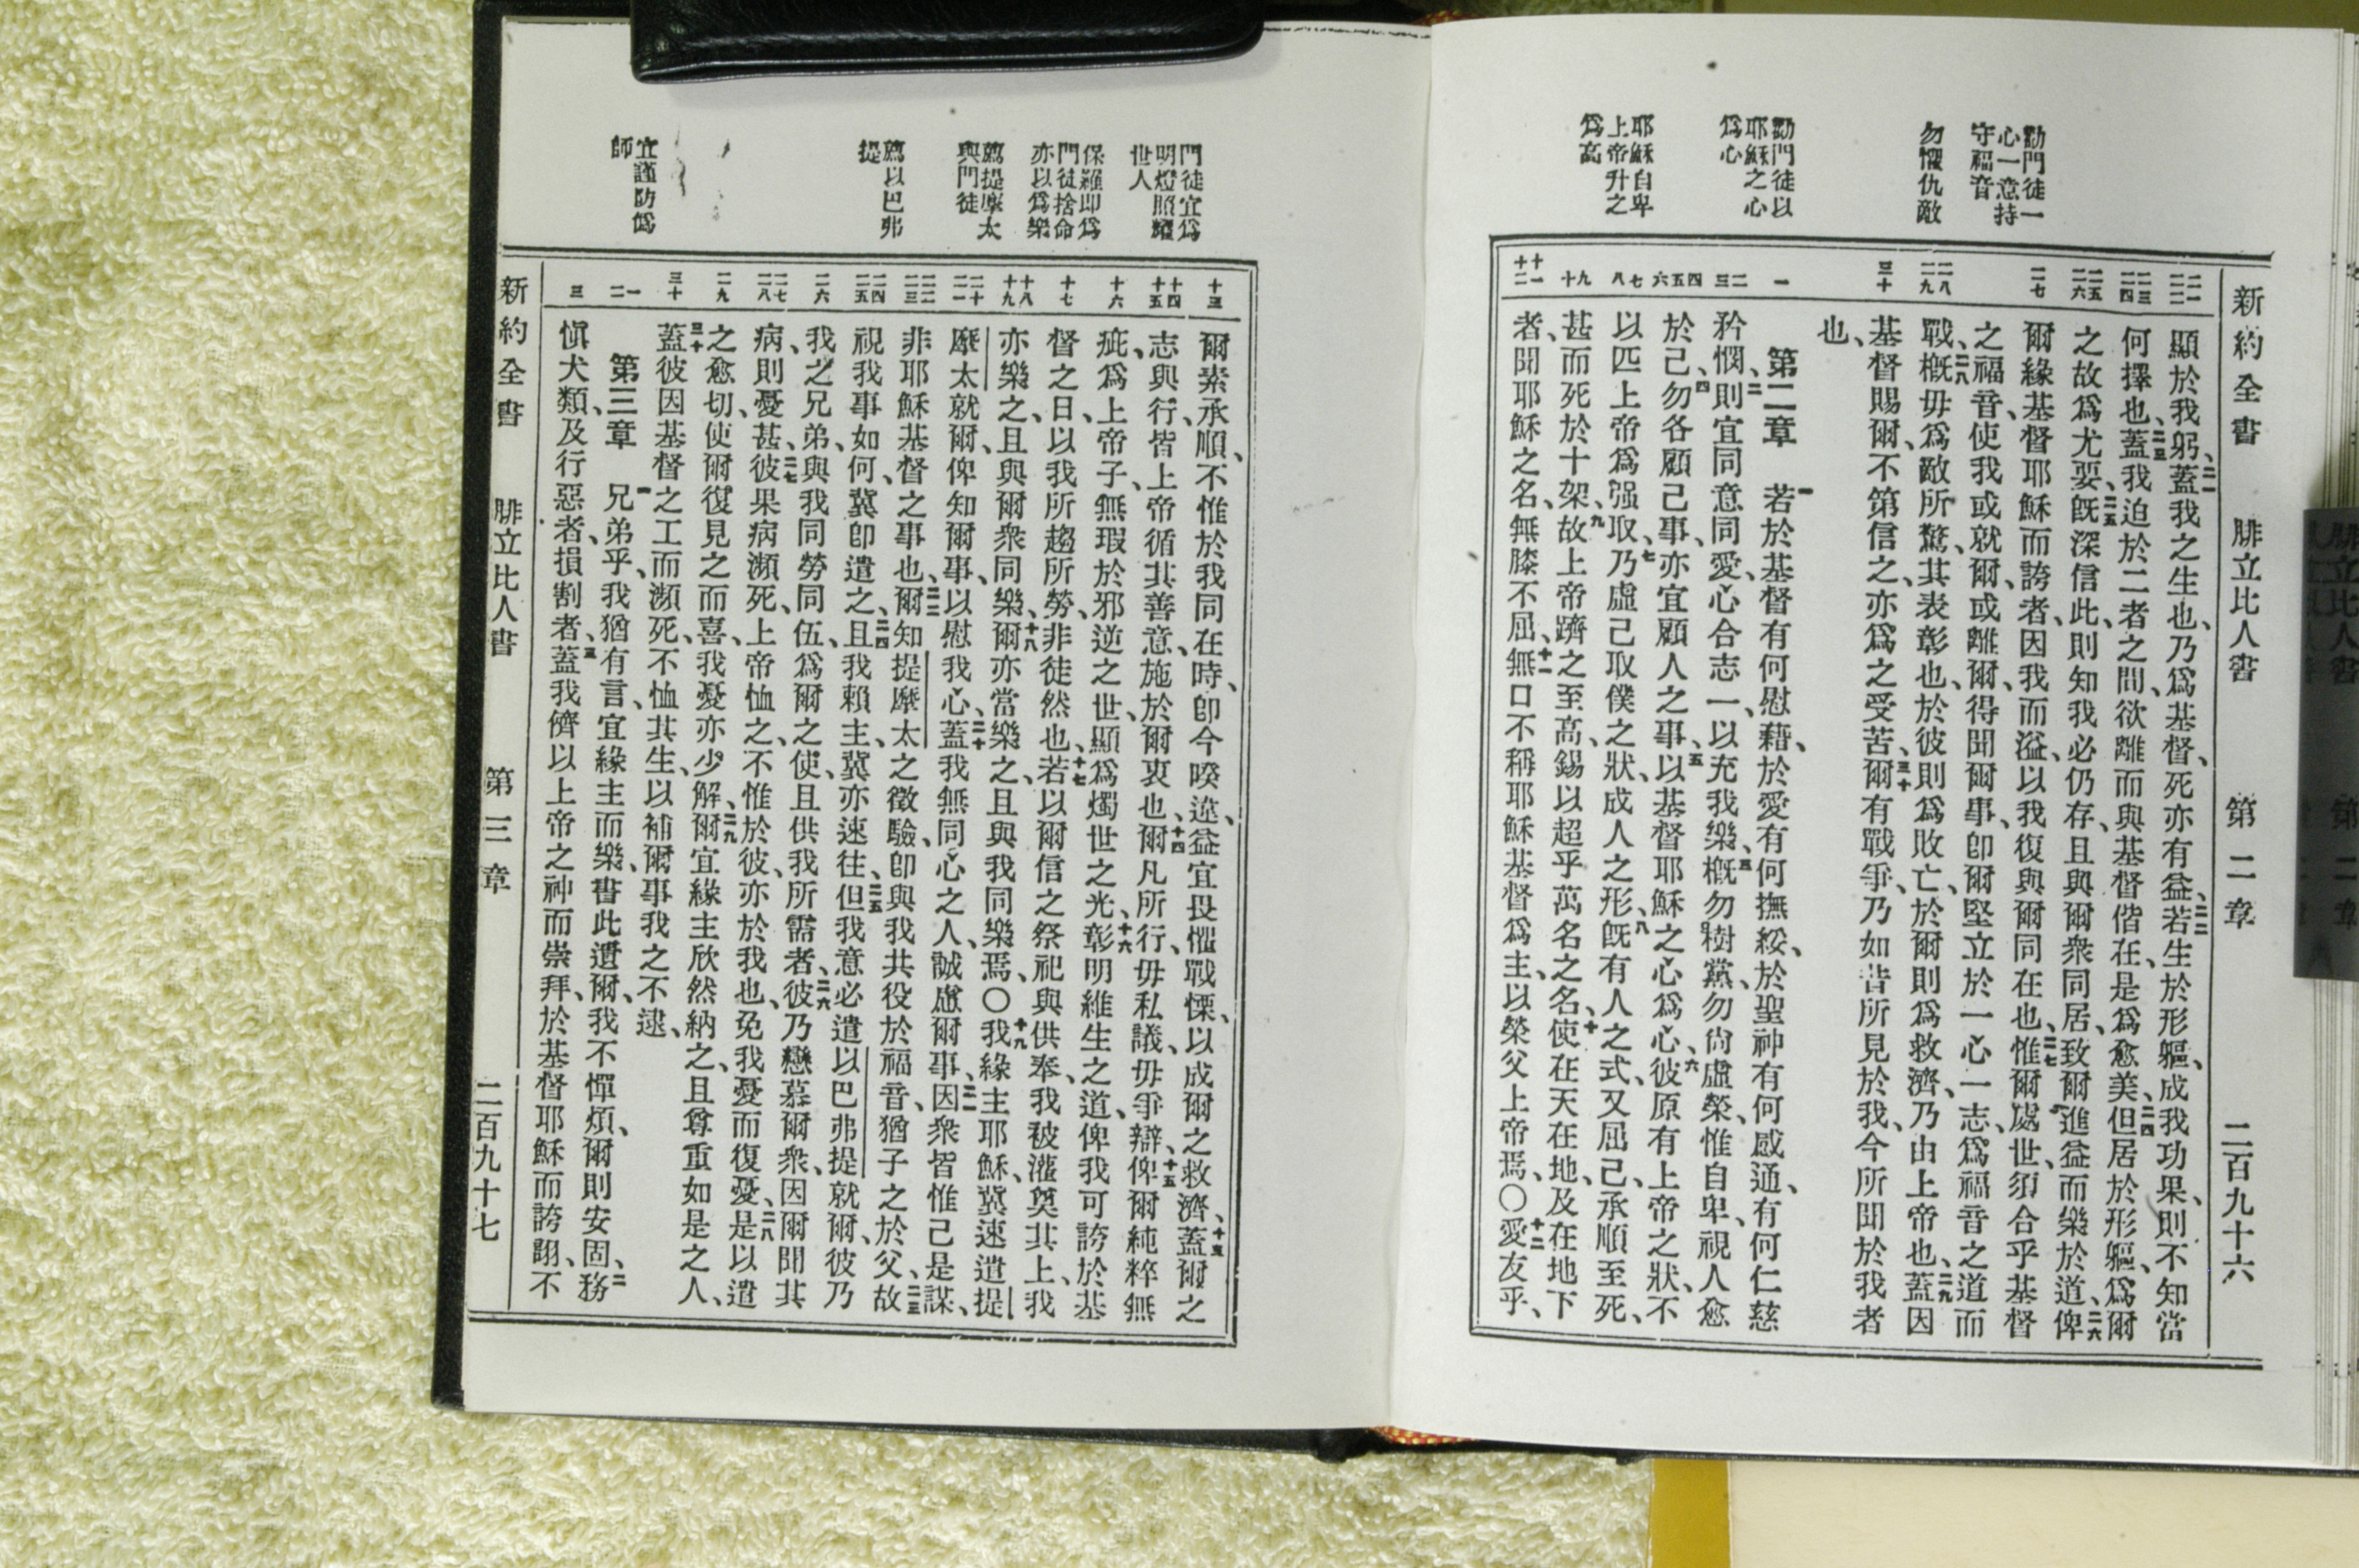 新約全書 腓立比人書 第二章 二百九十六
勸門徒一
心一意持
守福音
勿懼仇敵
勸門徒以
耶穌之心
爲心
耶穌自卑
上帝升之
爲高
二一 二二
二三 二四
二五 二六
二七
二八 二九
三十
一
二 三
四 五 六
七 八
九 十
十一 十二
顯於我躬、二一蓋我之生也、乃爲基督、死亦有益、二二若生於形軀、成我功果、則不知當
何擇也、二三蓋我迫於二者之間、欲離而與基督偕在、是爲愈美、二四但居於形軀、爲爾
之故爲尤要、二五旣深信此、則知我必仍存、且與爾衆同居、致爾進益而樂於道、二六俾
爾緣基督耶穌而誇者、因我而溢、以我復與爾同在也、二七惟爾處世、須合乎基督
之福音、使我或就爾、或離爾、得聞爾事、卽爾堅立於一心一志、爲福音之道而
戰、二八槪毋爲敵所驚、其表彰也、於彼則爲敗亡、於爾則爲救濟、乃由上帝也、二九蓋因
基督賜爾、不第信之、亦爲之受苦、三十爾有戰爭、乃如昔所見於我、今所聞於我者
也、
第二章 一若於基督有何慰藉、於愛有何撫綏、於聖神有何感通、有何仁慈
矜憫、二則宜同意同愛、心合志一、以充我樂、三槪勿樹黨、勿尙虛榮、惟自卑、視人愈
於己、四勿各顧己事、亦宜顧人之事、五以基督耶穌之心爲心、六彼原有上帝之狀、不
以匹上帝爲强取、七乃虛己取僕之狀、成人之形、八旣有人之式、又屈己、承順至死、
甚而死於十架、九故上帝躋之至高、錫以超乎萬名之名、十使在天在地、及在地下
者、聞耶穌之名、無膝不屈、十一無口不稱耶穌基督爲主、以榮父上帝焉、〇十二愛友乎、
門徒宜爲
明燈照耀
世人
保羅卽爲
門徒捨命
亦以爲樂
薦提摩太
與門徒
薦以巴弗
提
宜謹防僞
師
十三
十四 十五
十六
十七
十八 十九
二十 二一
二二 二三
二四 二五
二六
二七 二八
二九
三十
一 二
三
爾素承順、不惟於我同在時、卽今暌違、益宜畏懼戰慄、以成爾之救濟、十三蓋爾之
志與行、皆上帝循其善意、施於爾衷也、十四爾凡所行、毋私議、毋爭辯、十五俾爾純粹無
疵、爲上帝子、無瑕於邪逆之世、顯爲燭世之光、十六彰明維生之道、俾我可誇於基
督之日、以我所趨所勞、非徒然也、十七若以爾信之祭祀與供奉、我被灌奠其上、我
亦樂之、且與爾衆同樂、十八爾亦當樂之、且與我同樂焉、〇十九我緣主耶穌、冀速遣提
摩太就爾、俾知爾事、以慰我心、二十蓋我無同心之人、誠慮爾事、二一因衆皆惟己是謀、
非耶穌基督之事也、二二爾知提摩太之徵驗、卽與我共役於福音、猶子之於父、二三故
視我事如何、冀卽遣之、二四且我賴主、冀亦速往、二五但我意必遣以巴弗提就爾、彼乃
我之兄弟、與我同勞同伍、爲爾之使、且供我所需者、二六彼乃戀慕爾衆、因爾聞其
病、則憂甚、二七彼果病瀕死、上帝恤之、不惟於彼、亦於我也、免我憂而復憂、二八是以遣
之愈切、使爾復見之而喜、我憂亦少解、二九爾宜緣主欣然納之、且尊重如是之人、
三十蓋彼因基督之工而瀕死、不恤其生、以補爾事我之不逮、
第三章 一兄弟乎、我猶有言、宜緣主而樂、書此遺爾、我不憚煩、爾則安固、二務
愼犬類、及行惡者、損割者、三蓋我儕以上帝之神而崇拜、於基督耶穌而誇詡、不
新約全書 腓立比人書 第三章 二百九十七